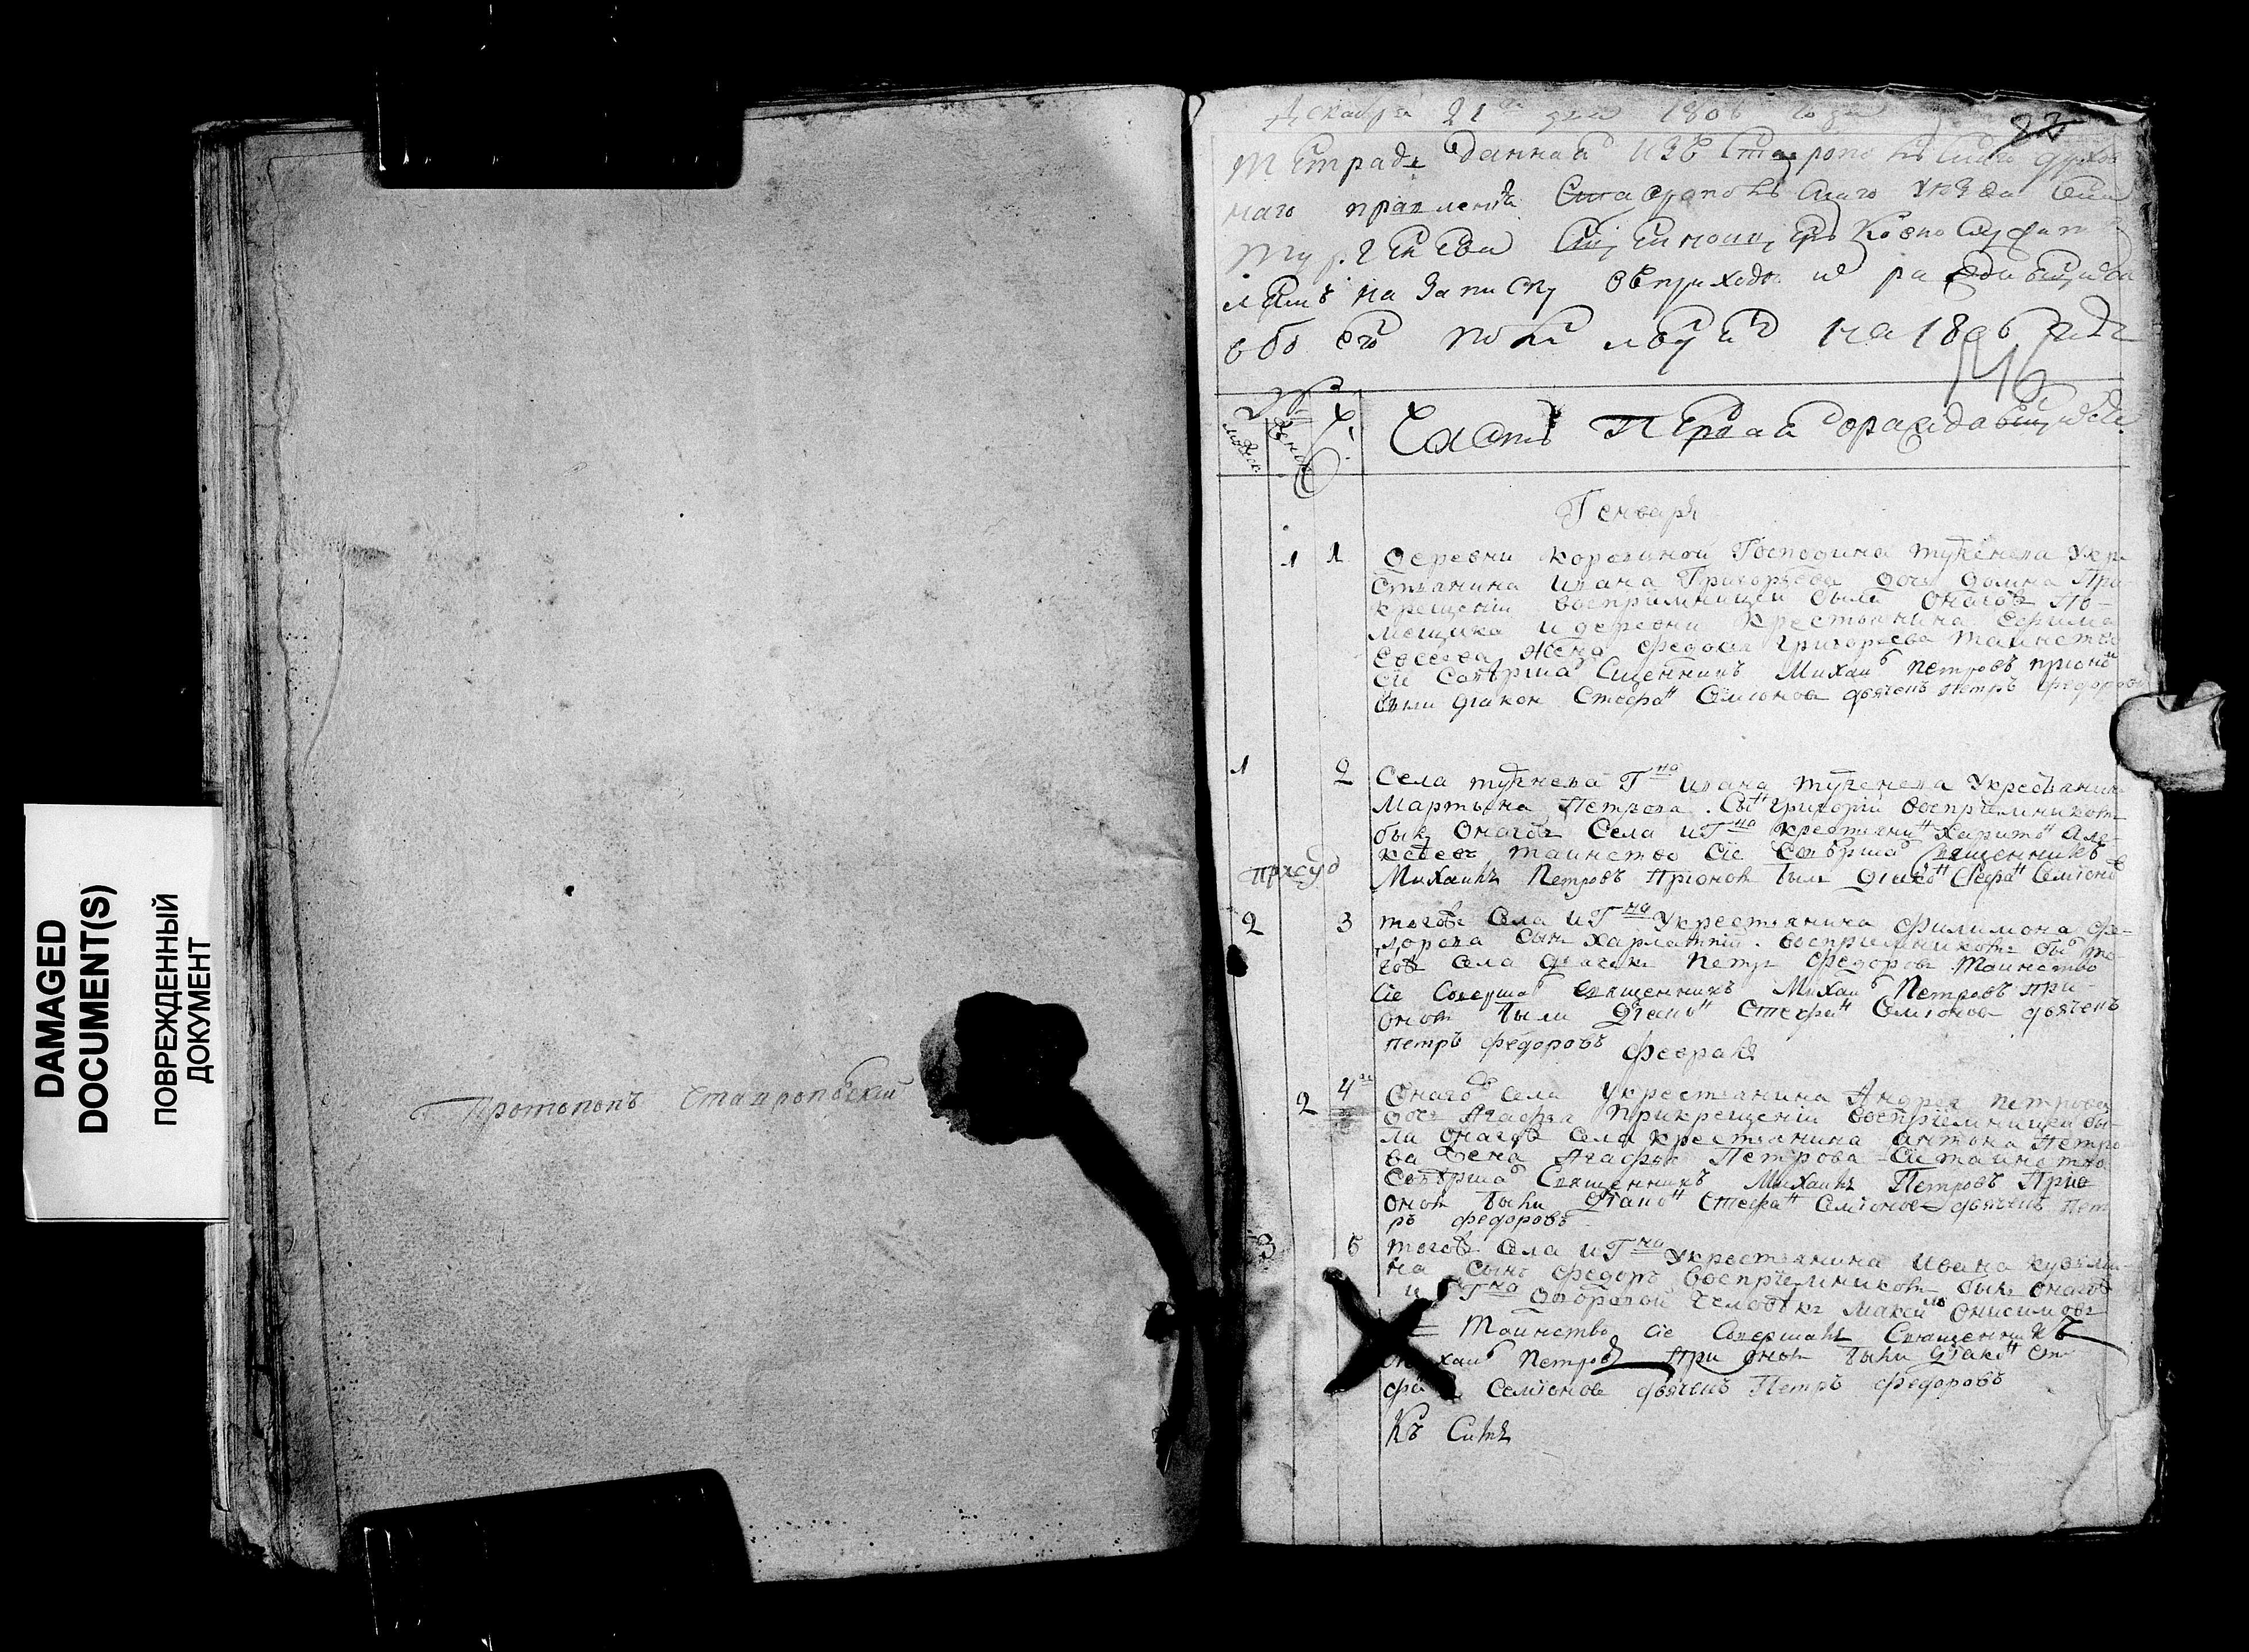 DAMAGED
DOCUMENT(S)
ПОВРЕЖДЕННЫЙ
ДОКУМЕНТ
Протопопъ Ставропольскій
Декабря 21 дня 1806 года
22
Тетрадь данная изъ Ставропольскаго духов
наго правления Ставропольскаго уезда села
Тургенева Священноцерковнослужите
лямъ на записку въ приходе ихъ раждающихся
обоего пола людей на 1806 годъ
146
Часть Первая о раждающихся
Генваря
1 1 Деревни Коровиной Господина Тургенева У кре-
стьянина Ивана Григорьева дочь Домна При
крещеніи восприемницей была онагожъ По-
мещика и деревни крестьянина Ефима
Евсеева жена Федосья Григорьева Таинство
сіе Совершалъ Сщенникъ Михаилъ Петровъ при ономъ
были диакон Стефанъ Семионовъ дьячекъ Петръ Федоровъ
1 2 Села Тургенева Гна Ивана Тургенева У крестьянина
Мартына Петрова Сынъ Григорий Восприемникомъ
былъ онагожъ Села и Гна крестьянинъ Харитонъ Але-
ксеевъ таинство сіе Совершалъ Священникъ
Михаилъ Петровъ При ономъ были Диаконъ Стефанъ Семионовъ
2 3 тогожъ Села и Гна У крестьянина Филимона Фе-
дорова Сынъ Харлампий восприемникомъ былъ то
гожъ Села дьячекъ Петръ Федоровъ Таинство
сіе Совершалъ Священникъ Михаилъ Петровъ При
ономъ были Диаконъ Стефанъ Семионовъ дьячекъ
Петръ Федоровъ
Февраля
2 4 Онагожъ Села У крестьянина Андрея Петрова
дочь Агафья При крещеніи Восприемницей бы-
ла онагожъ Села крестьянина Антона Петро
ва жена Агафья Петрова Сіе таинство
Совершалъ Священникъ Михаилъ Петровъ При
ономъ были Диаконъ Стефанъ Семионовъ дьячекъ Пет
ръ Федоровъ
3 5 тогожъ Села и Гна У крестьянина Ивана Кузьми-
на Сынъ Федоръ Восприемникомъ былъ онагожъ
и Гна Дворовой человекъ Максимъ Онисимовъ
Таинство сіе Совершалъ Священникъ
Михаилъ Петровъ При ономъ были Диаконъ Сте
фанъ Семионовъ дьячекъ Петръ Федоровъ
Къ Симъ